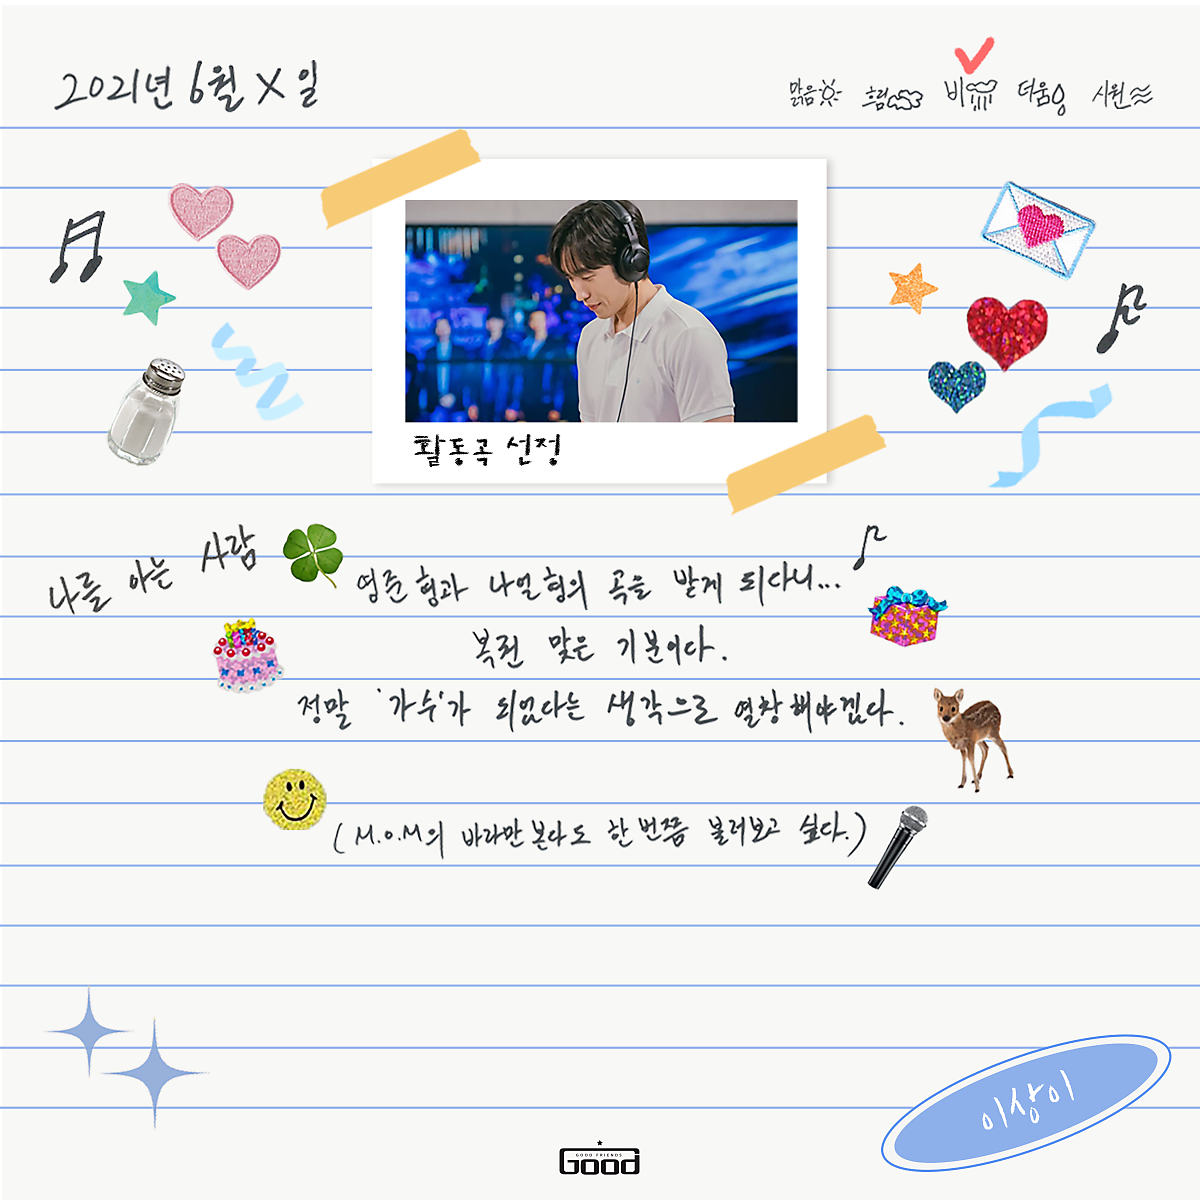 2021년 6월 X일
맑음 흐림 비 더움 시원
활동곡 선정
나를 아는 사람
영준형과 나얼형의 곡을 받게 되다니...
복권 맞은 기분이다.
정말 '가수'가 되었다는 생각으로 열창해야겠다.
(M.O.M의 바라만 본다도 한 번쯤 불러보고 싶다.)
이상이
GOOD FRIENDS
GOOD